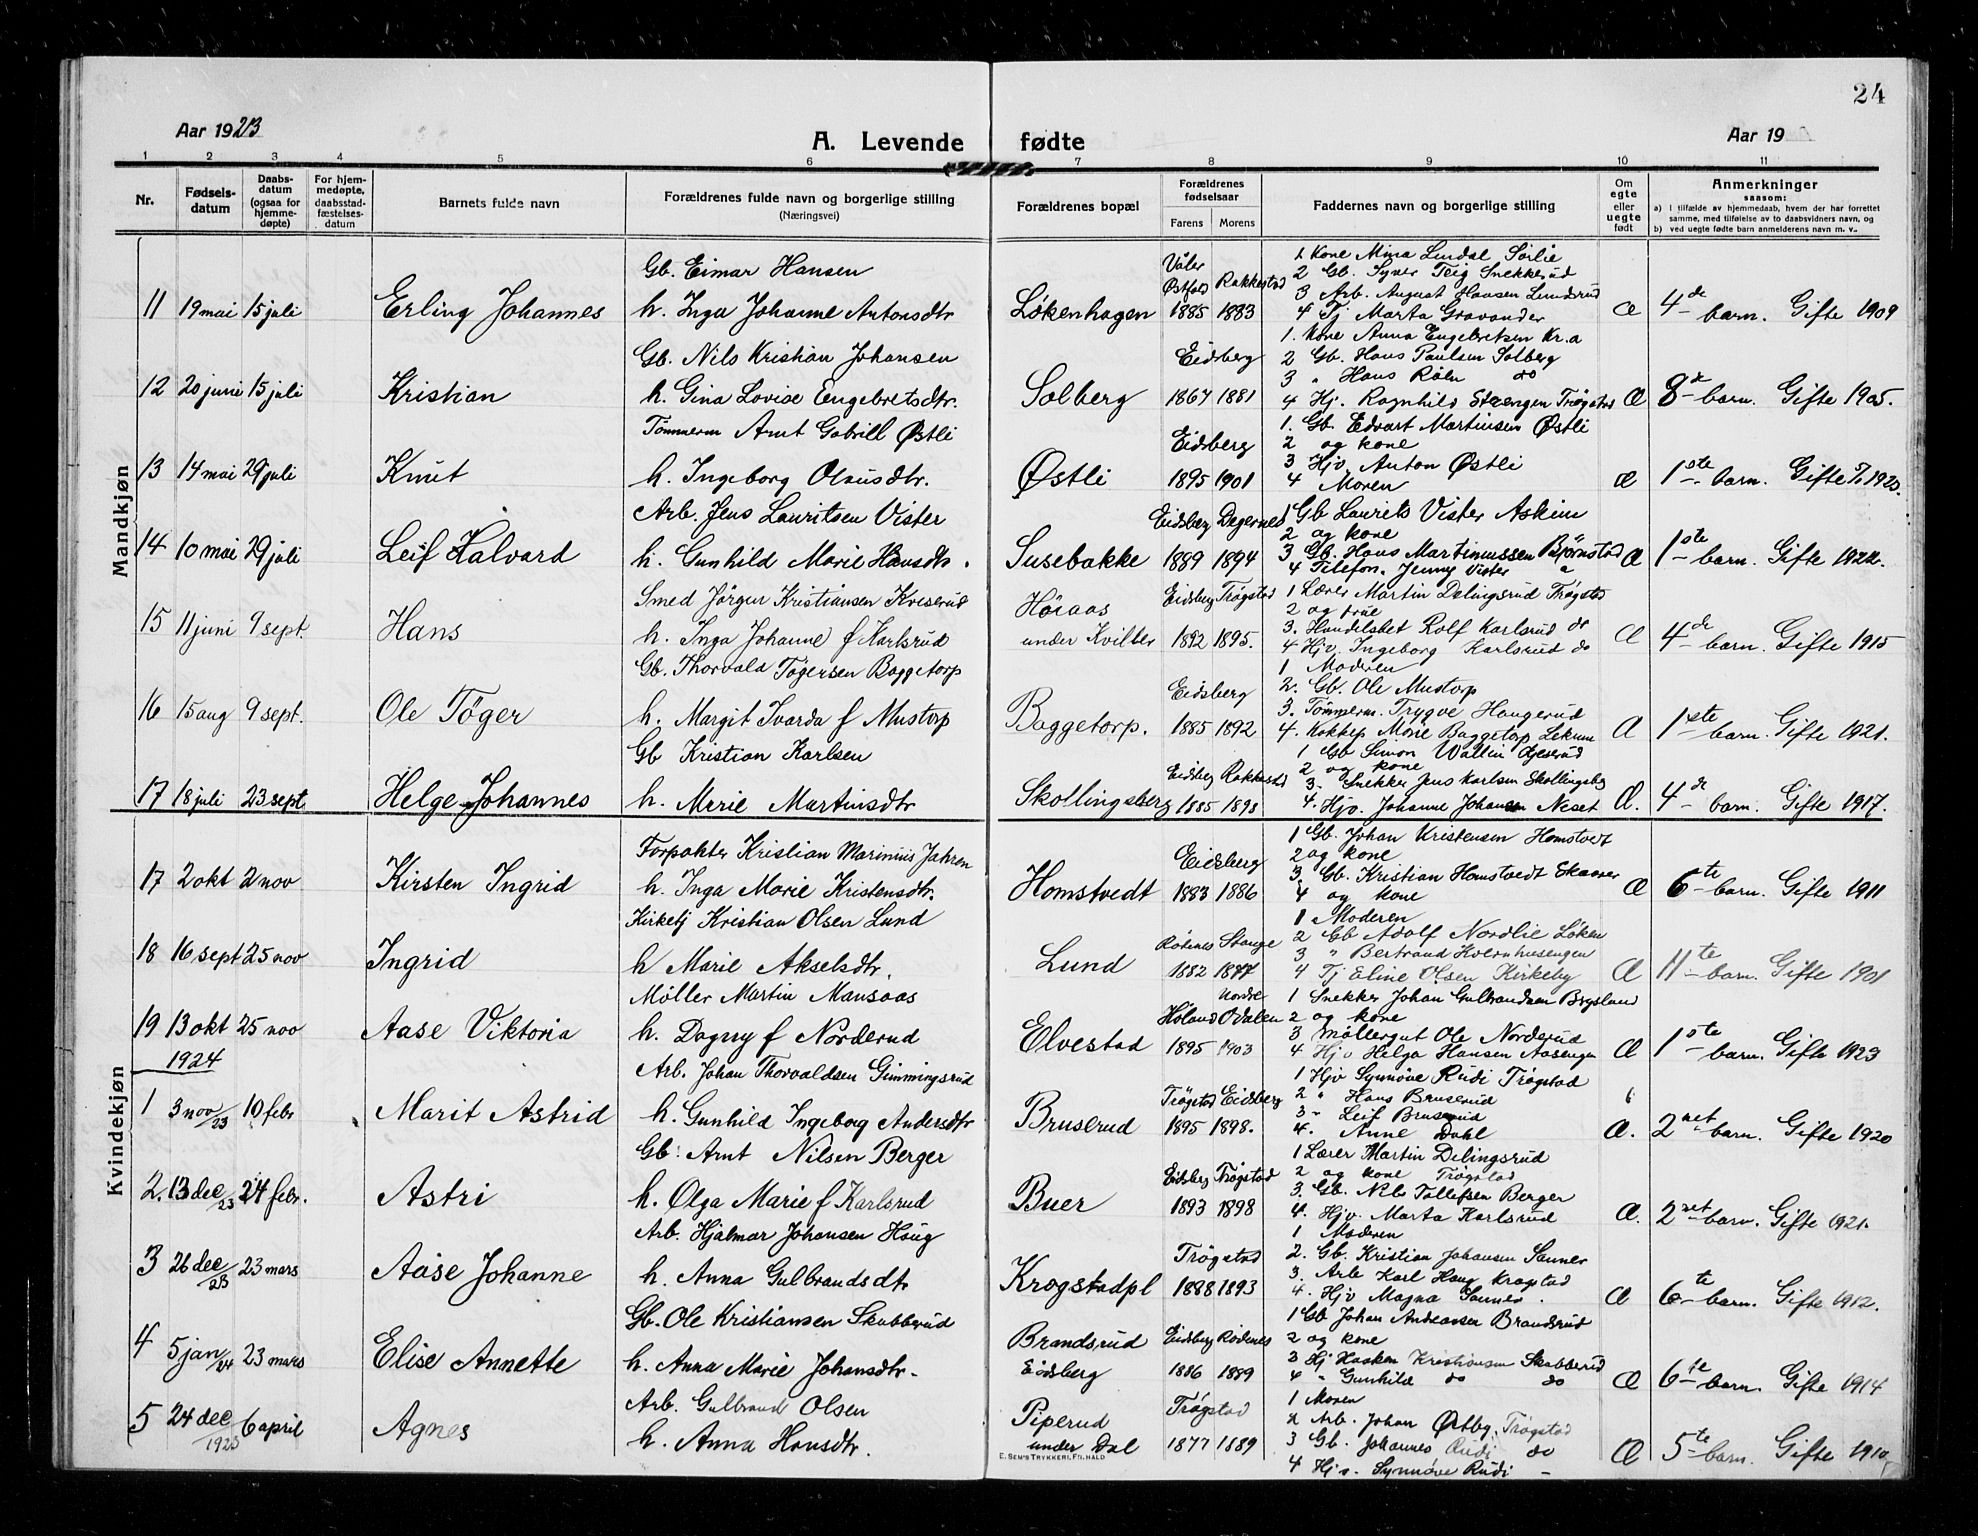 24
Aar 1923
A. Levende fødte
Aar 19
1 2 3 4 5 6 7 8 9 10 11
Nr.
Fødsels-
datum
Daabs-
datum
(ogsaa for
hjemme-
døpte)
For hjem-
medøpte,
daabsstad-
fæstelses-
datum
Barnets fulde navn
Forældrenes fulde navn og borgerlige stilling
(Næringsvei)
Forældrenes bopæl
Forældrenes
fødselsaar
Farens Morens
Faddernes navn og borgerlige stilling
Om
egte
eller
uegte
født
Anmerkninger
saasom:
a) I tilfælde av hjemmedaab, hvem der har forrettet
samme, med tilføielse av to daabsvidners navn, og
b) ved uegte fødte barn anmelderens navn m. v..
Mandkjøn
11 19 mai 15 juli Erling Johannes
Gb. Eimar Hansen
h. Inga Johanne Antonsdtr
Løkenhagen
Våler Østfold Rakkestad
1885 1883
1. Kone Mina Lindal Sørlie
2 Gb. Syver Teig Snekkerud
3 Arb. August Hansen Lundsrud
4 Tj Marta Gravander
Æ 4de barn. Gifte 1909
12 20 juni 15 juli Kristian
Gb. Nils Kristian Johansen
h. Gina Lovise Engebretsdtr.
Solberg
Eidsberg
1867 1881
1. Kone Anna Engebretsen Kr.a
2 Gb. Hans Paulsen Solberg
3 " Hans Røen do
4 Hj. Ragnhild Strengen Trøgstad
Æ 8de barn. Gifte 1905.
13 14 mai 29 juli Knut
Tømmerm Arnt Gabrill Østli
h. Ingeborg Olausdtr.
Østli
Eidsberg
1895 1901
1. Gb. Edvart Martinsen Østli
2 og kone
3 Hjv. Anton Østli
4 Moren
æ 1ste barn. Gifte 1923.
14 10 mai 29 juli Leif Halvard
Arb. Jens Lauritsen Vister
h. Gunhild Marie Hansdtr.
Susebakke
Eidsberg Degernes
1889 1894
1 Gb Laurits Vister Askim
2 og kone
3 Gb. Hans Martinussen Bjørnstad
4 Telefon. Jenny Vister
Æ 1ste barn. Gifte 1922.
15 11 juni 9 sept. Hans
Smed Jørgen Kristiansen Kviserud
h. Inga Johanne f Karlsrud
Høiaas
under Kvilter
Eidsberg Trøgstad
1892 1895.
1 Lærer Martin Delingsrud Trøgstad
2 og frue
3. Handelsbet Rolf Karlsrud do
4 Hjv. Ingeborg Karlsrud do
Æ 4de barn. Gifte 1915
16 15 aug 9 sept. Ole Tøger
Gb. Thorvald Tøgersen Baggetorp
h. Margit Ivarda f Mustorp
Baggetorp.
Eidsberg
1885 1892
1 Moderen
2. Gb. Ole Mustorp
3. Tømmerm. Trygve Haugerud
4. Kokkep Marie Baggetorp Lekum
Æ 1ste barn. Gifte 1921.
17 18 juli 23 sept Helge Johannes
Gb Kristian Karlsen
h. Marie Martinsdtr
Skollingsberg
Eidsberg Rakkestad
1885 1898
1 Gb Simon Wallin
2 og kone
3. Snekker Jens Karlsen Skollingsbg
4. Hjv. Johanne Johansen Neset
Æ. 4de barn. Gifte 1917.
Kvindekjøn
17 2 okt 2 nov Kirsten Ingrid
Forpakter Kristian Marinius Jahren
h. Inga Marie Kristensdtr.
Homstvedt
Eidsberg
1883 1886
1 Gb. Johan Kristensen Homstvedt
2 og kone
3. Gb. Kristian Homstvedt Skaarer
4 og kone
Æ 6te barn. Gifte 1911
18 16 sept 25 nov Ingrid
Kirketj Kristian Olsen Lund
h Marie Akselsdtr.
Lund
Rødenes Stange
1882 1877
1 Moderen
2 Gb Adolf Nordlie Løken
3 " Bertrand Kvernhusengen
4 Tj Eline Olsen Kirkeby
Æ 11te barn. Gifte 1901
19 13 okt 25 nov Aase Viktoria
Møller Martin Mansaas
h. Dagny f Norderud
Elvestad
Høland Nordre Odalen
1895 1903
1 Snekker Johan Gulbrandsen Bogslund
2 og kone
3 Møllergut Ole Norderud
4 Hjv Helga Hansen Aasengen
Æ 1ste barn. Gifte 1923
1924
1 3 nov/23 10 febr Marit Astrid
Arb. Johan Thorvaldsen Gimmingsrud
h. Gunhild Ingeborg Andersdtr
Bruserud
Trøgstad Eidsberg
1895 1898.
1 Hjv Synnøve Rudi Trøgstad
2 " Hans Bruserud
3 " Leif Bruserud
4. Anne Dahl
Æ. 2net barn. Gifte 1920
2. 13 dec/23 24 febr. Astri
Gb. Arnt Nilsen Berger
h. Olga Marie f Karlsrud
Buer
Eidsberg Trøgstad
1893 1898
1 Lærer Martin Delingsrud
2 og kone Trøgstad
3. Gb. Nils Tollefsen Berger
4. Hjv. Marta Karlsrud
Æ. 2net barn. Gifte 1921.
3 26 dec/23 23 mars Aase Johanne
Arb. Hjalmar Johansen Haug
h. Anna Gulbrandsdtr
Krogstadpl
Trøgstad
1888 1893
1 Moderen
2. Gb. Kristian Johansen Sanner
3. Arb Karl Haug Krogstad
4. Hjv Magna Sanner.
Æ 6te barn. Gifte 1912.
4 5 jan/24 23 mars Elise Annette
Gb. Ole Kristiansen Skabberud
h. Anna Marie Johansdtr.
Brandsrud
Eidsberg
Eidsberg Rødenes
1886 1889
1 Gb Johan Andeassen Brandsrud
2 og kone
3 Hj Haaken Kristiansen Skabberud
4 " Gunhild do do
Æ 6te barn. Gifte 1914
5 24 dec/1923 6 april Agnes
Arb. Gulbrand Olsen
h. Anna Hansdtr.
Piperud
under Dal
Trøgstad
1877 1889
1 Moren
2 Arb. Johan Østby, Trøgstad
3 Gb. Johannes Rudi do
4 Hjv. Synnøve Rudi -
Æ 5te barn. Gifte 1910
E. SEM'S TRYKKERI, FR.HALD